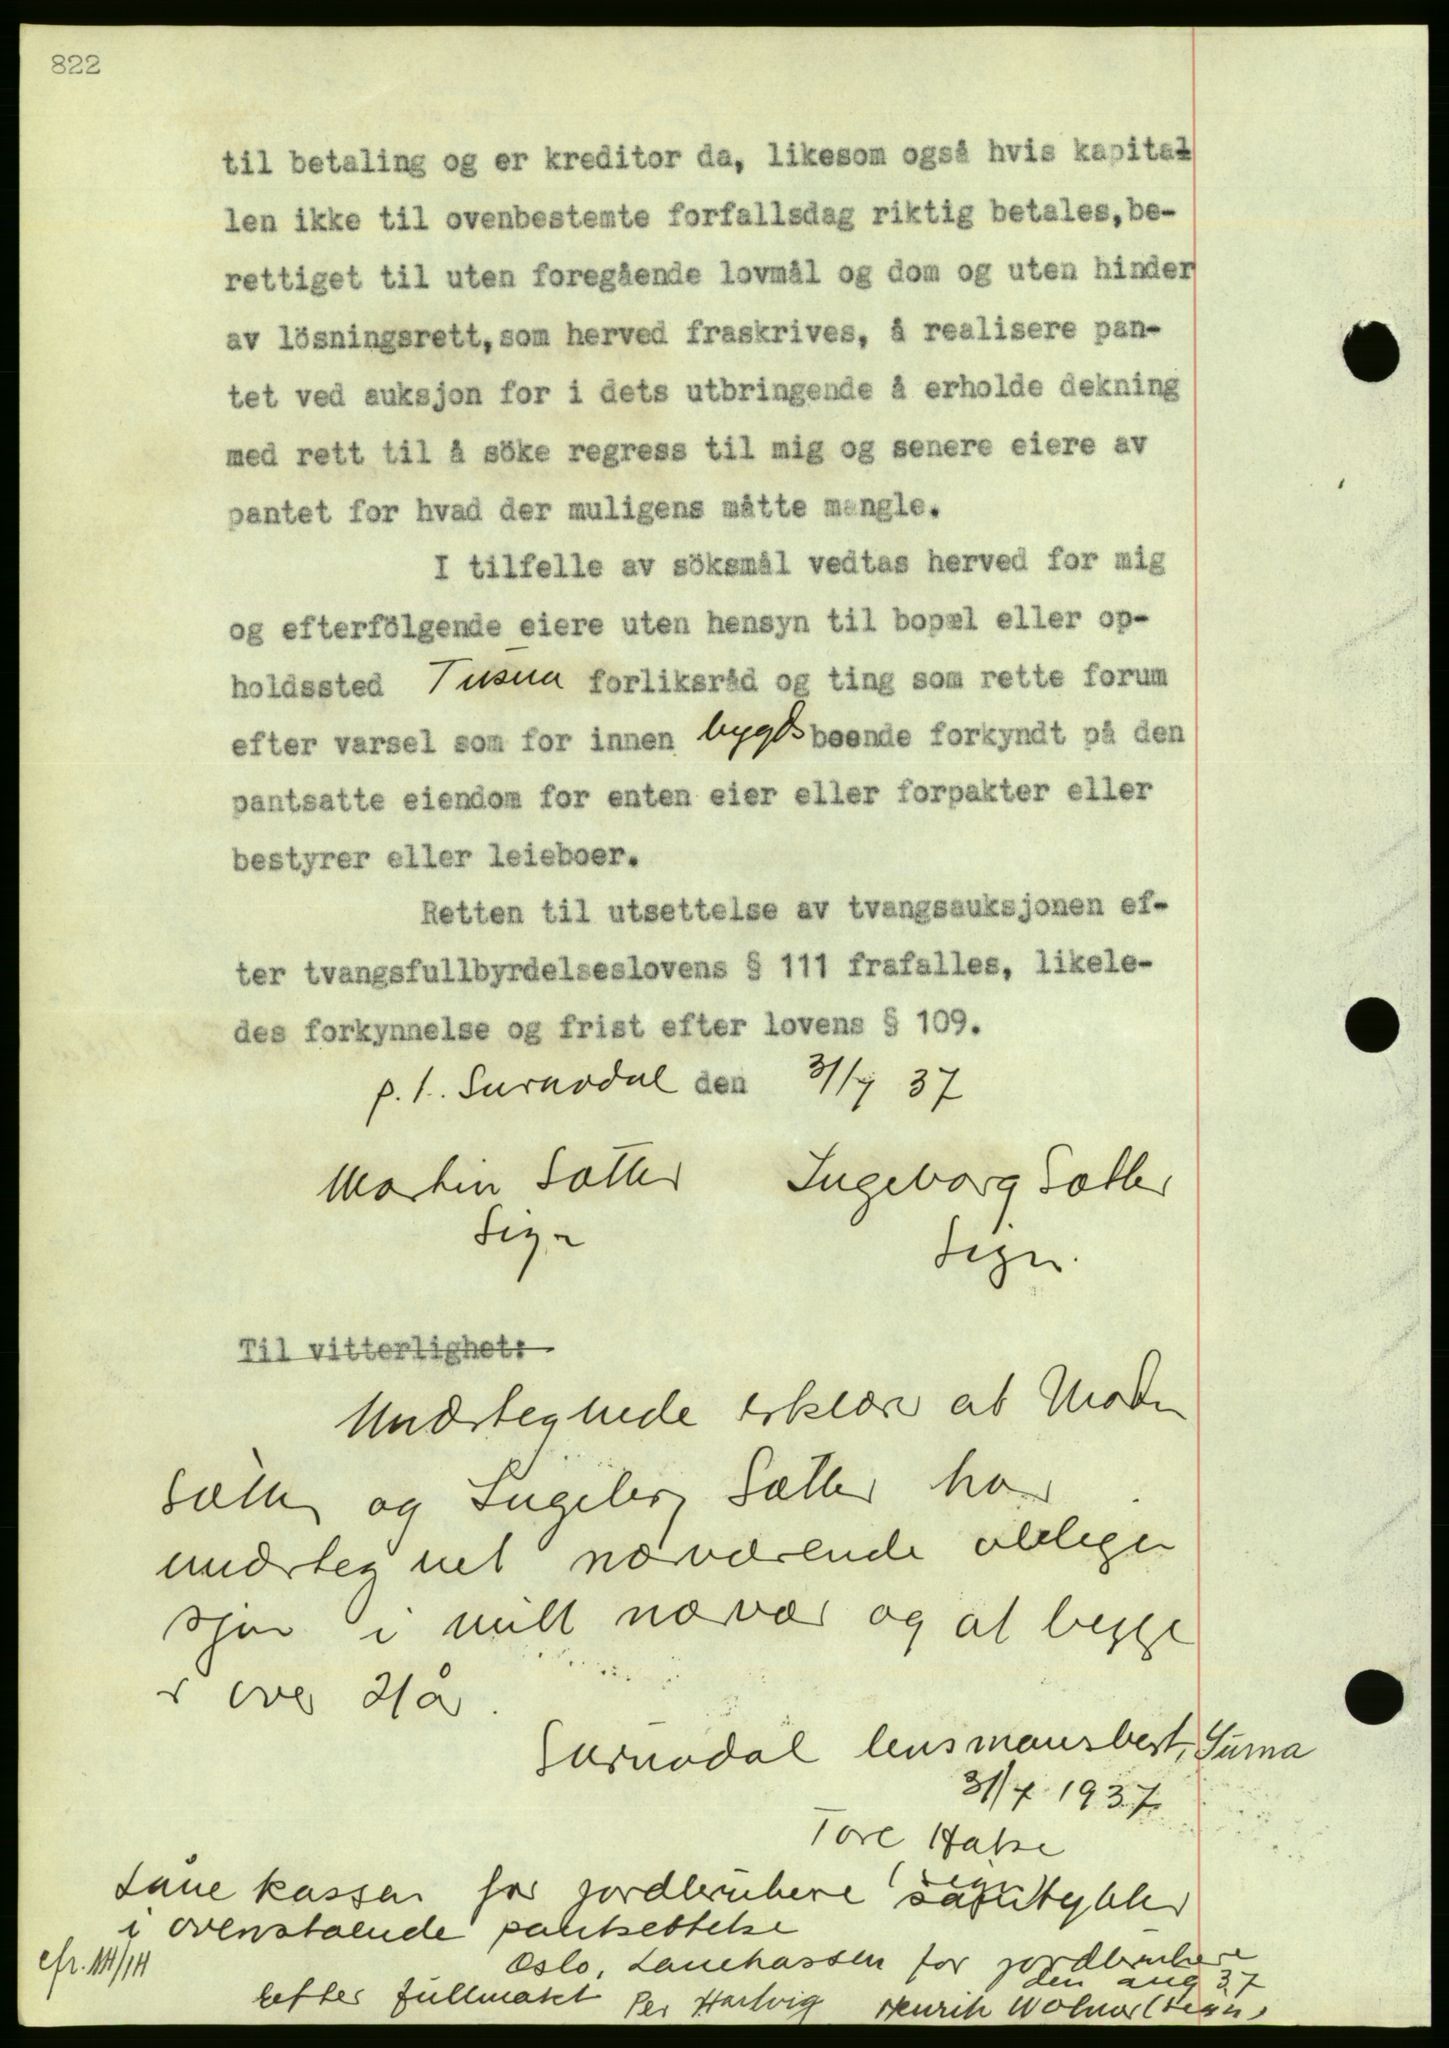 822
til betaling og er kreditor da, likesom også hvis kapital
len ikke til ovenbestemte forfallsdag riktig betales,be-
rettiget til uten foregående lovmål og dom og uten hinder
av lösningsrett,som herved fraskrives, å realisere pan-
tet ved auksjon for i dets utbringende å erholde dekning
med rett til å söke regress til mig og senere eiere av
pantet for hvad der muligens måtte mangle.
I tilfelle av söksmål vedtas herved for mig
og efterfölgende eiere uten hensyn til bopæl eller op-
holdssted Tusna forliksråd og ting som rette forum
efter varsel som for innen bygds boende forkyndt på den
pantsatte eiendom for enten eier eller forpakter eller
bestyrer eller leieboer.
Retten til utsettelse av tvangsauksjonen ef-
ter tvangsfullbyrdelseslovens § 111 frafalles, likele-
des forkynnelse og frist efter lovens § 109.
p.t. Surnadal den 31/7 37
Martin Sætter Ingeborg Sætter
Sign Sign.
Til vitterlighet:
Undertegnede erklærer at Martin
Sætter og Ingeborg Sætter har
undertegnet nærværende obliga
sjon i mitt nærvær og at begge
er over 21 år.
Surnadal lensmansbest, Surna
31/7 1937
Tore
(sign)
Lånekassen for jordbrukere samtykker
i ovenstaende pantsettelse
Oslo, Lånekassen for jordbrukere
den aug 37
efter fullmakt Per Hartvig Henrik (sign)
cfr. 14/14